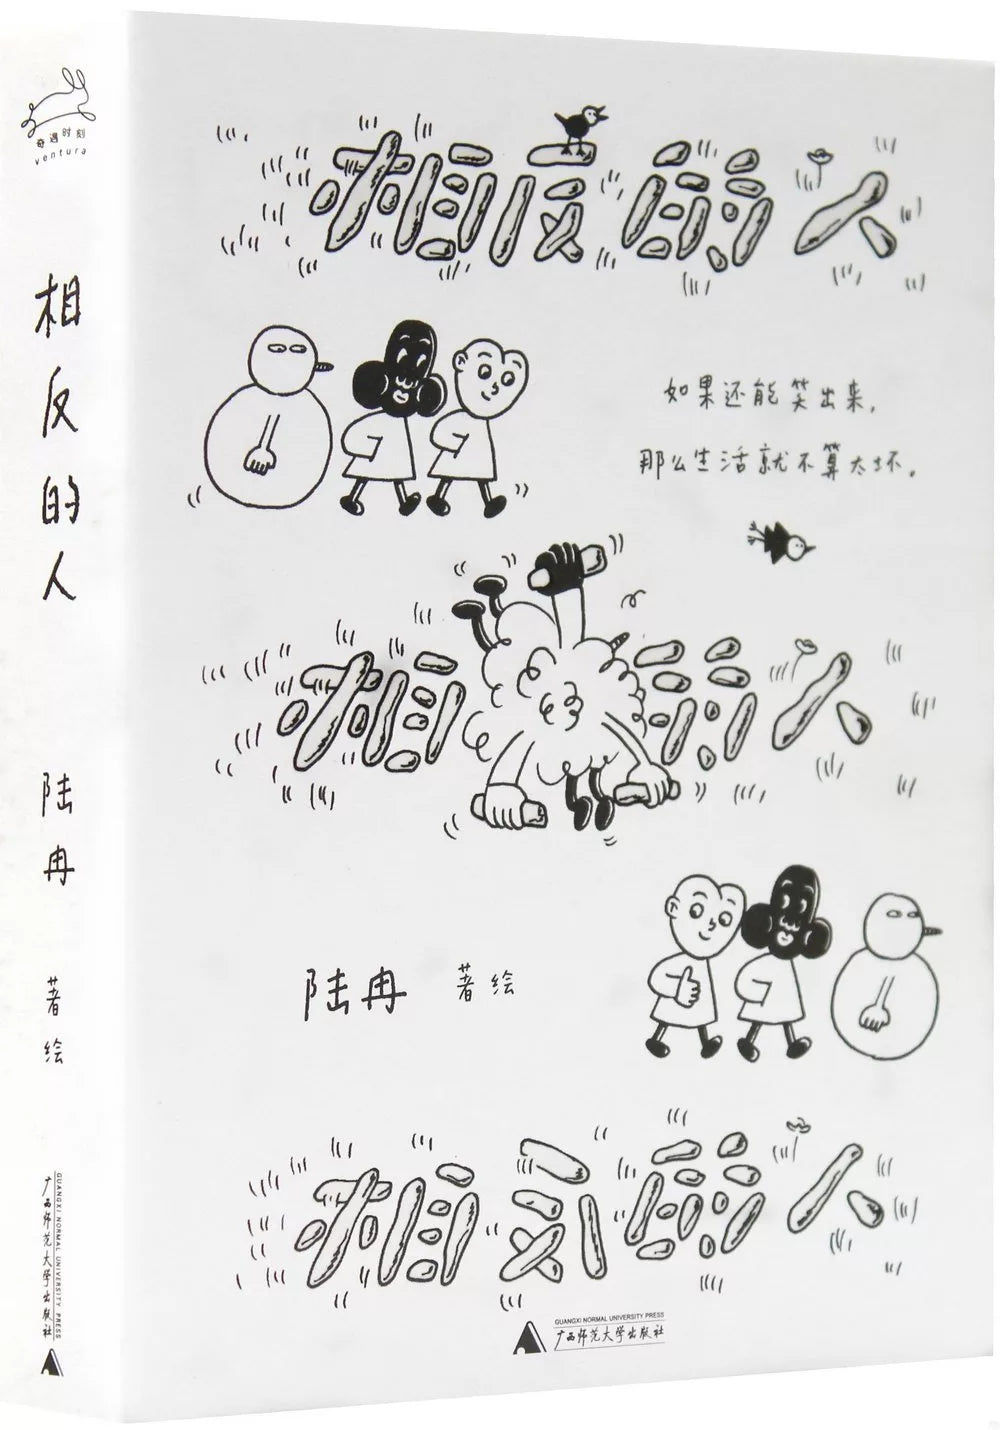 奇遇时刻
ventura
相反的人
陆冉
著绘
GUANGXI NORMAL UNIVERSITY PRESS
广西师范大学出版社
相反的人
如果还能笑出来，
那么生活就不算太坏。
相 的人
陆冉 著绘
相 的人
GUANGXI NORMAL UNIVERSITY PRESS
广西师范大学出版社